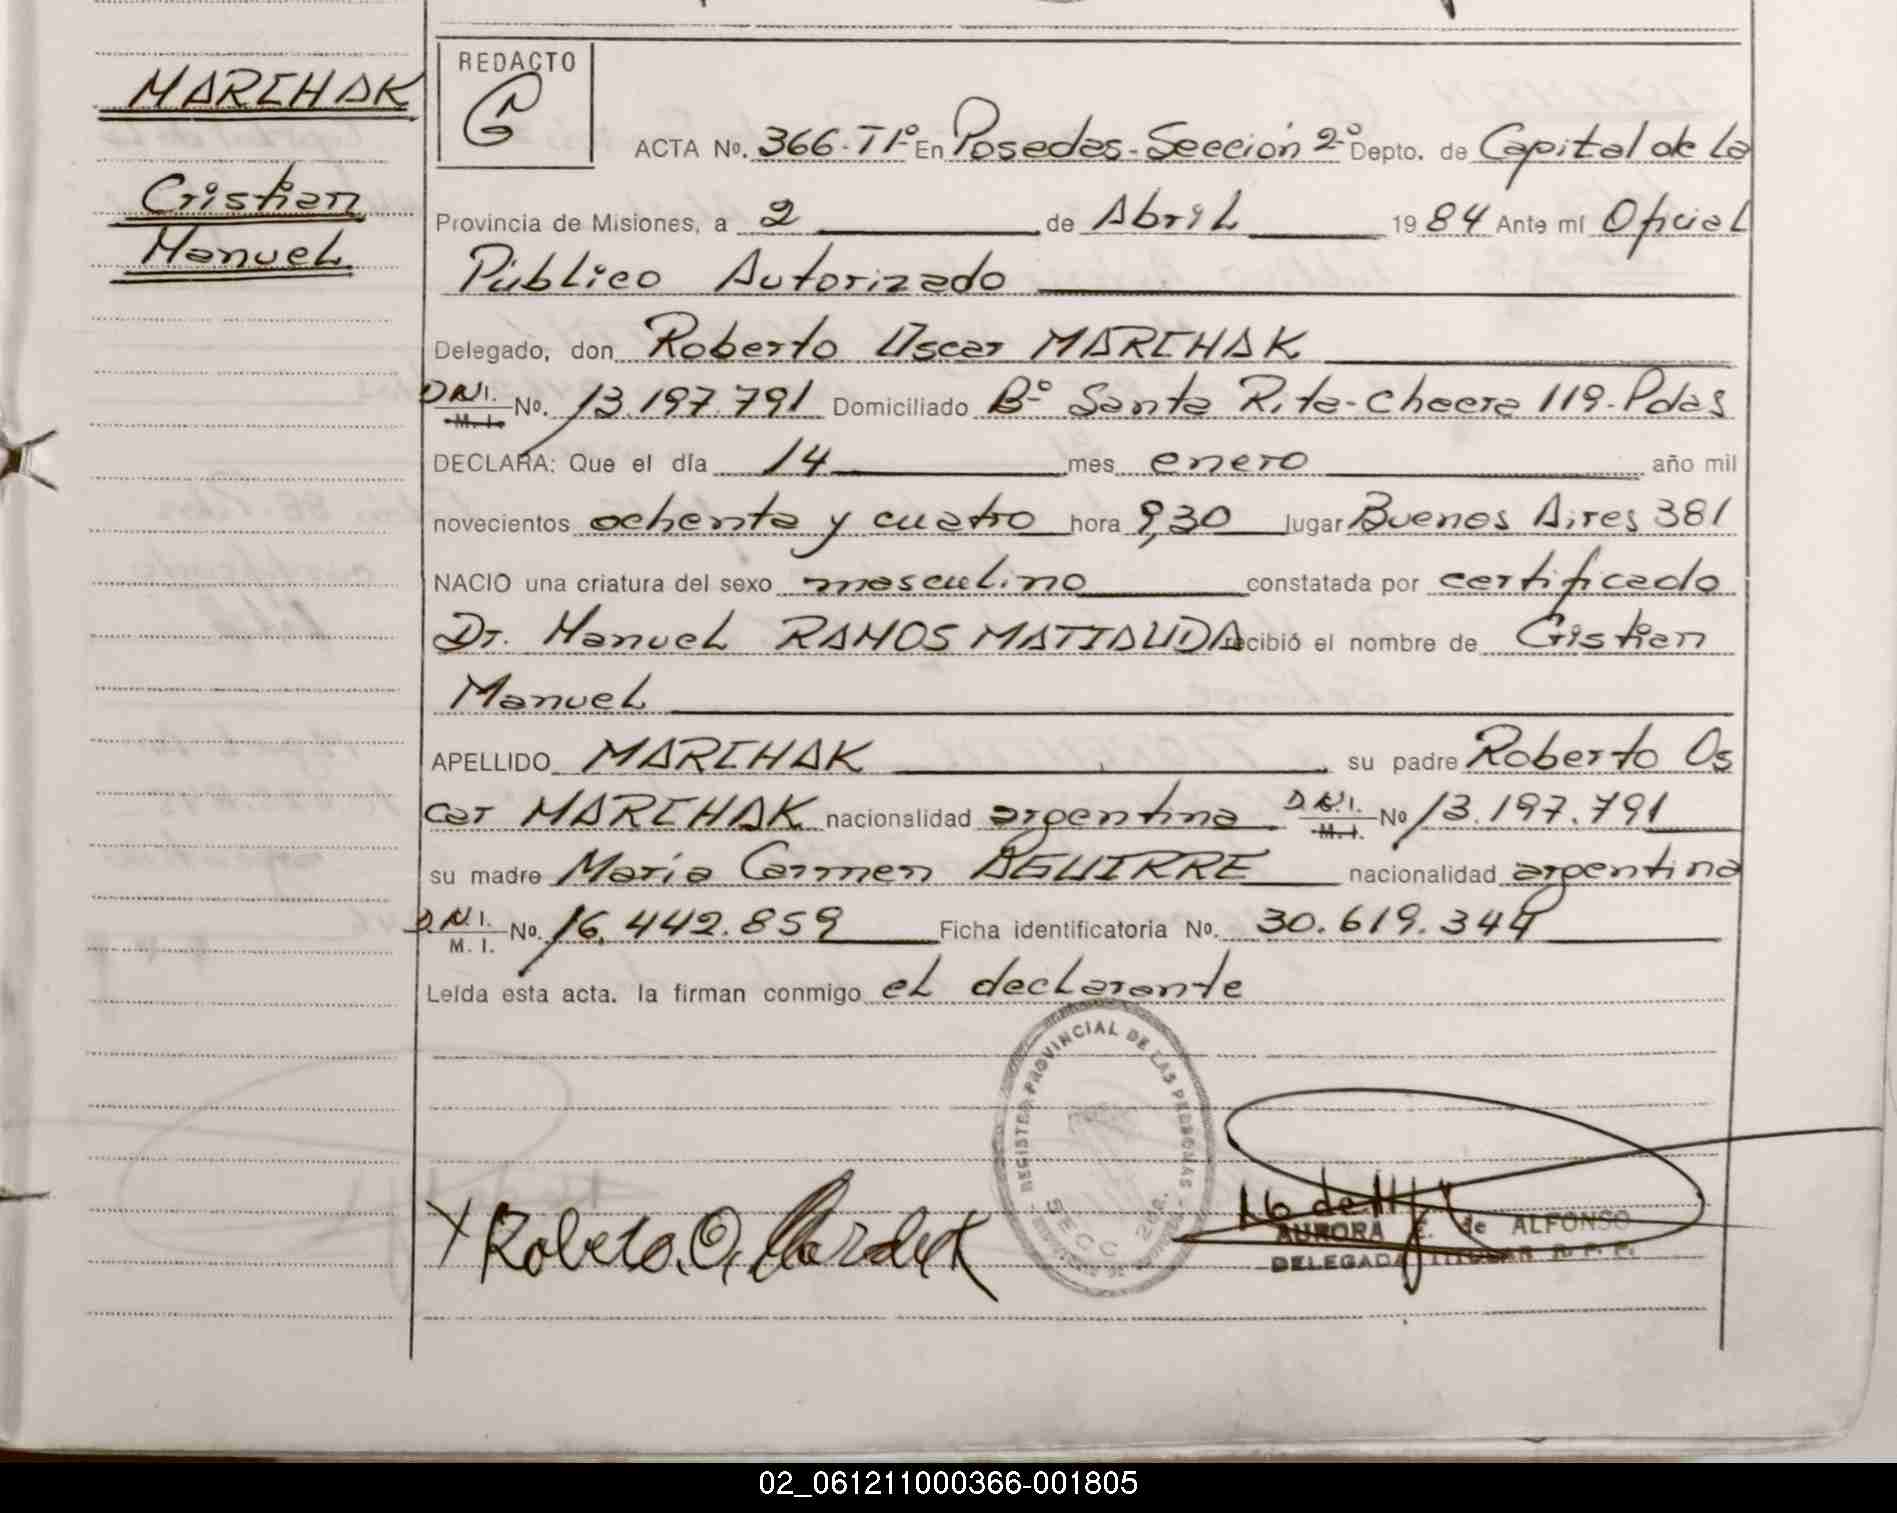 MARCHAK
Cristian
Manuel
REDACTO
G
ACTA No. 366-T1º En Posadas-Sección 2º Depto. de Capital de La
Provincia de Misiones, a 2 de Abril 1984 Ante mí Oficial
Público Autorizado
Delegado, don Roberto Oscar MARCHAK
D.N.I. M. I. No. 13.197.791 Domiciliado Bº Santa Rita-Chacra 119-Pdas
DECLARA: Que el día 14 mes enero año mil
novecientos ochenta y cuatro hora 9,30 lugar Buenos Aires 381
NACIO una criatura del sexo masculino constatada por certificado
Dr. Manuel RAMOS MATTAUDA recibió el nombre de Cristian
Manuel
APELLIDO MARCHAK su padre Roberto Os
car MARCHAK nacionalidad argentina D.N.I. M. I. No 13.197.791
su madre María Carmen AGUIRRE nacionalidad argentina
D.N.I. M. I. No. 16.442.859 Ficha identificatoria No. 30.619.344
Leída esta acta. la firman conmigo el declarante
REGISTRO PROVINCIAL DE LAS PERSONAS
SECC 2da.
X Roberto O. Marchak
AURORA E. de ALFONSO
DELEGADA TITULAR R. P. P.
02_061211000366-001805